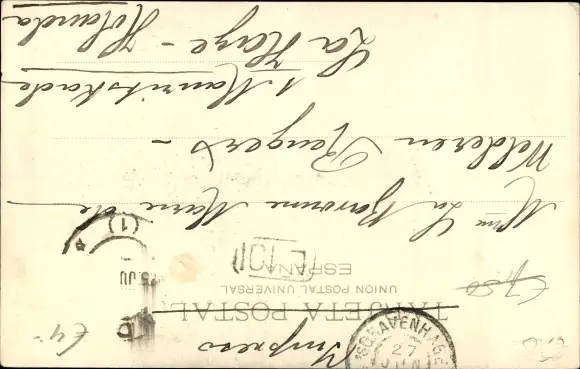 Impreso
TARJETA POSTAL
UNION POSTAL UNIVERSAL
ESPAÑA
'SGRAVENHAGE
27
JUN
25 JU
(1)
Mme La Baronne Marie de
Welderen Rengers -
1 Mauritskade
La Haye - Holanda